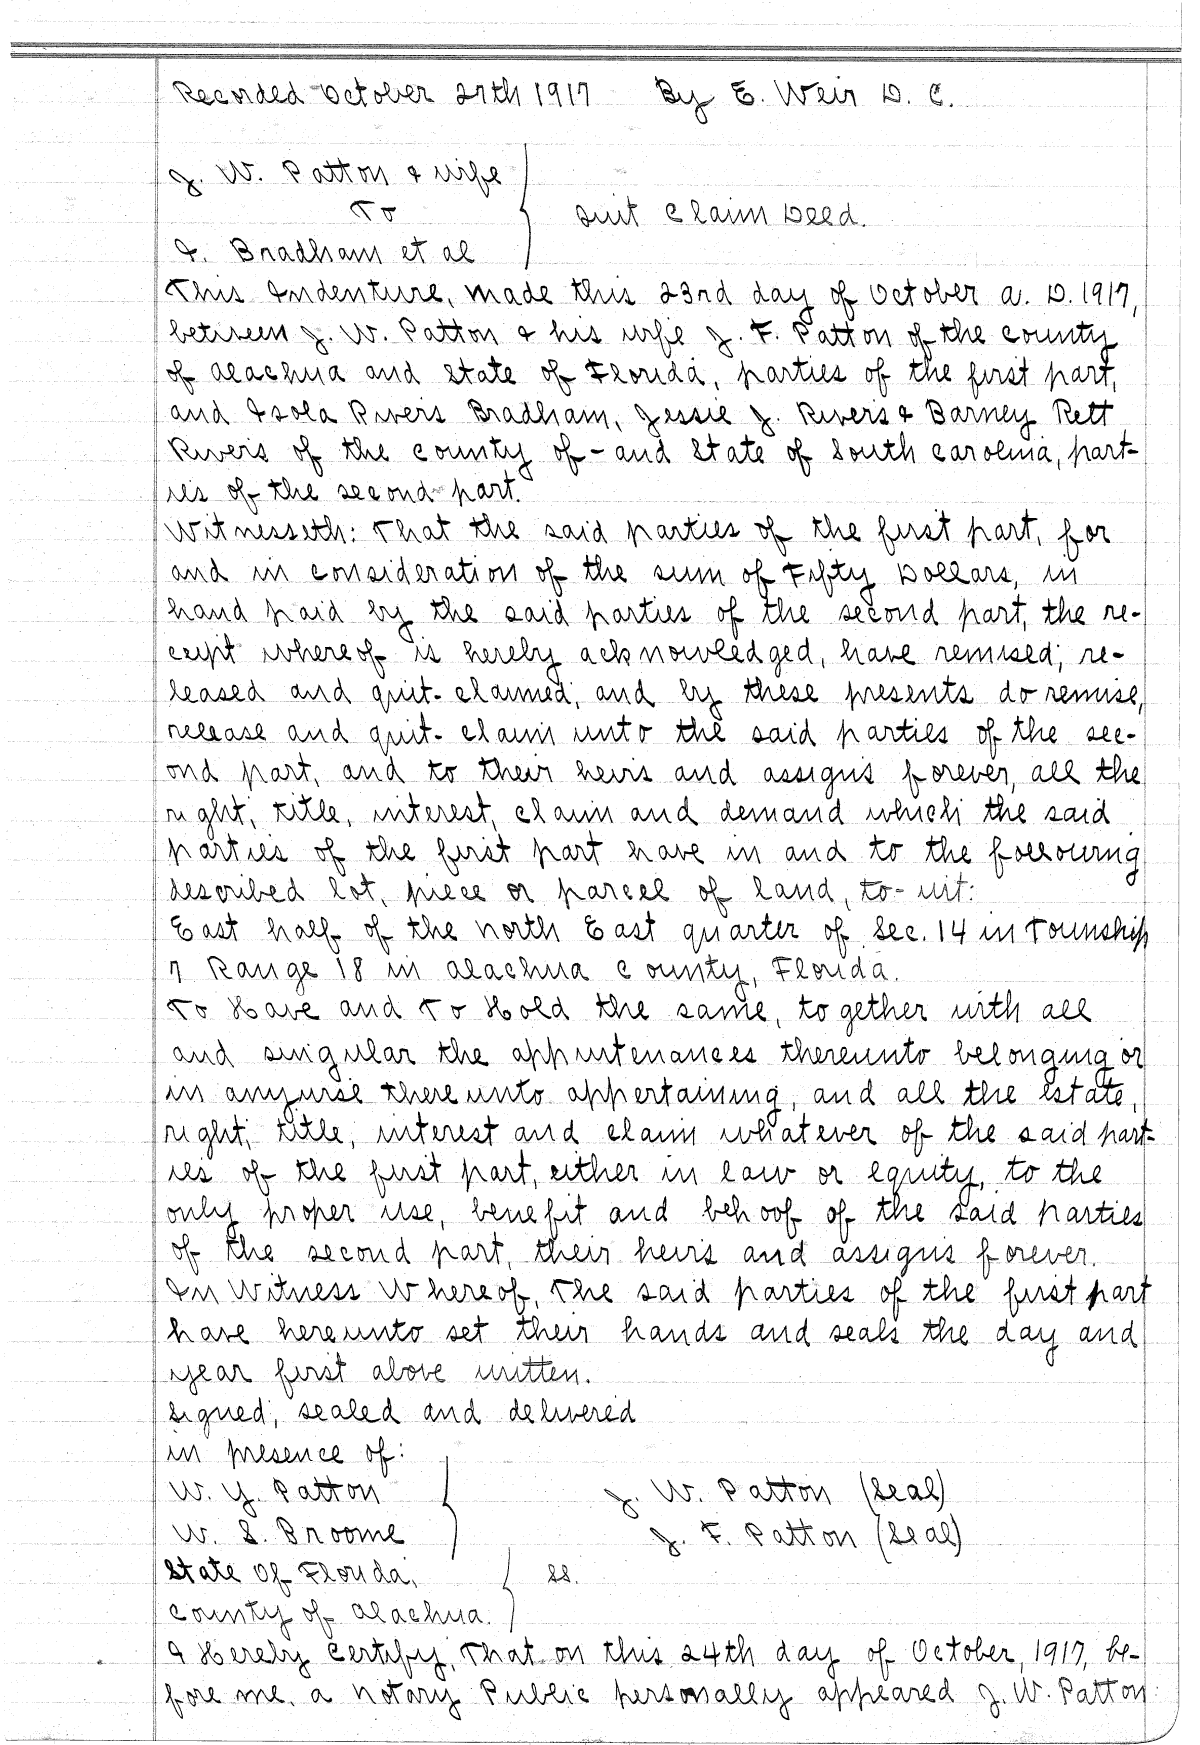 Recorded October 27th 1917 By E. Weir D. C.
J. W. Patton & wife
To
I. Bradham et al
Quit Claim Deed.
This Indenture, made this 23rd day of October A. D. 1917,
between J. W. Patton & his wife J. F. Patton of the county
of Alachua and State of Florida, parties of the first part,
and Isola Rivers Bradham, Jessie J. Rivers & Barney Rett
Rivers of the county of - and State of South Carolina, part-
ies of the second part.
Witnesseth: That the said parties of the first part, for
and in consideration of the sum of Fifty Dollars, in
hand paid by the said parties of the second part, the re-
ceipt whereof is hereby acknowledged, have remised, re-
leased and quit-claimed, and by these presents do remise,
release and quit-claim unto the said parties of the sec-
ond part, and to their heirs and assigns forever, all the
right, title, interest, claim and demand which the said
parties of the first part have in and to the following
described lot, piece or parcel of land, to-wit:
East half of the North East quarter of Sec. 14 in Township
7 Range 18 in Alachua County, Florida.
To Have and To Hold the same, together with all
and singular the appurtenances thereunto belonging or
in anywise thereunto appertaining, and all the estate,
right, title, interest and claim whatever of the said part-
ies of the first part, either in law or equity, to the
only proper use, benefit and behoof of the said parties
of the second part, their heirs and assigns forever.
In Witness Whereof, The said parties of the first part
have hereunto set their hands and seals the day and
year first above written.
Signed, sealed and delivered
in presence of:
W. Y. Patton J. W. Patton (Seal)
W. S. Broome J. F. Patton (Seal)
State Of Florida, ss.
County of Alachua.
I Hereby Certify, That on this 24th day of October, 1917, be-
fore me, a Notary Public personally appeared J. W. Patton